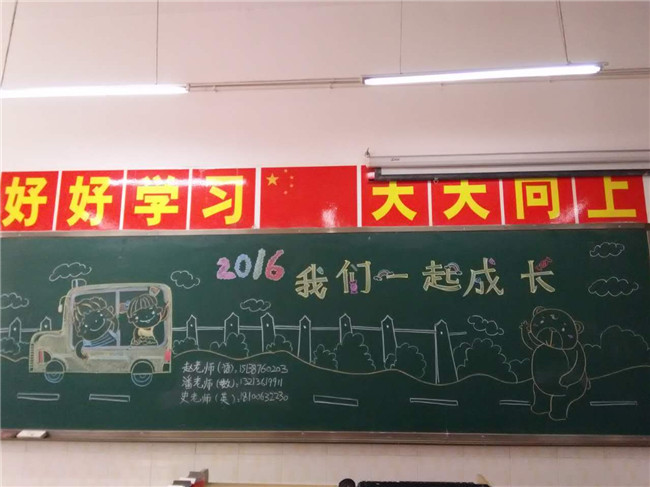 好好学习 天天向上
2016 我们一起成长
赵老师(语),15138760203
潘老师(数),13213619911
史老师(英),18100632230